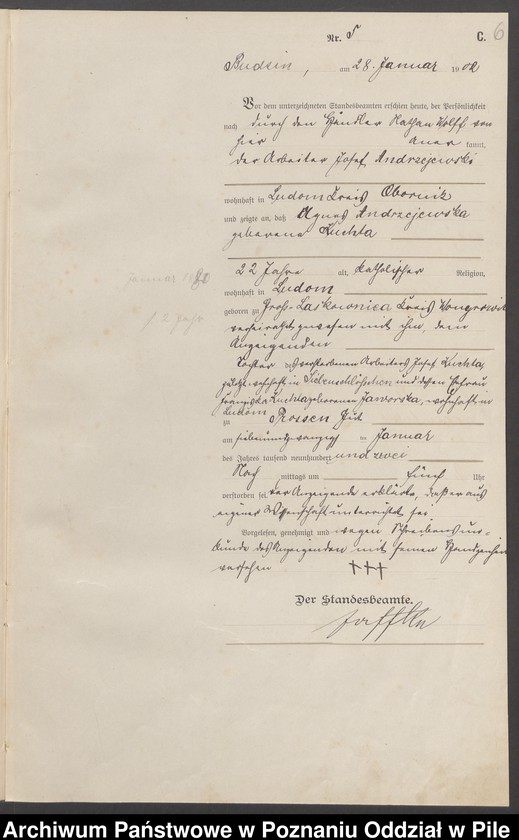 Nr. 5
C. 6
Budsin, am 28. Januar 1902
Vor dem unterzeichneten Standesbeamten erschien heute, der Persönlichkeit
nach durch den Händler Nathan Wolff von
hier aner kannt,
der Arbeiter Josef Andrzejewski
wohnhaft in Ludom Kreis Obornik
und zeigte an, daß Agnes Andrzejewska
geborene Kuchta
22 Jahre alt, katholischer Religion,
wohnhaft in Ludom
geboren zu Groß-Laskownica Kreis Wongrowitz
verheirathet gewesen mit ihm, dem
Anzeigenden
Tochter des verstorbenen Arbeiters Josef Kuchta,
zuletzt wohnhaft in und dessen Ehefrau
Franziska Kuchta geborenen Jaworska, wohnhaft in
Ludom
zu
am siebenundzwanzig ten Januar
des Jahres tausend neunhundert und zwei
Nach mittags um fünf Uhr
verstorben sei. Der Anzeigende erklärte, daß er aus
eigener Wissenschaft unterrichtet sei.
Vorgelesen, genehmigt und wegen Schreibensun-
kunde des Anzeigenden mit seinen Handzeichen
versehen +++
Der Standesbeamte.
Januar 1902
Jahr
Archiwum Państwowe w Poznaniu Oddział w Pile